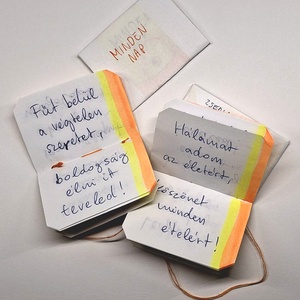 MINDEN
NAP
Fűt belül
a végtelen
szeretet,
boldogság
élni itt
teveled!
Hálámat
adom
az életért,
köszönet
minden
ételért!